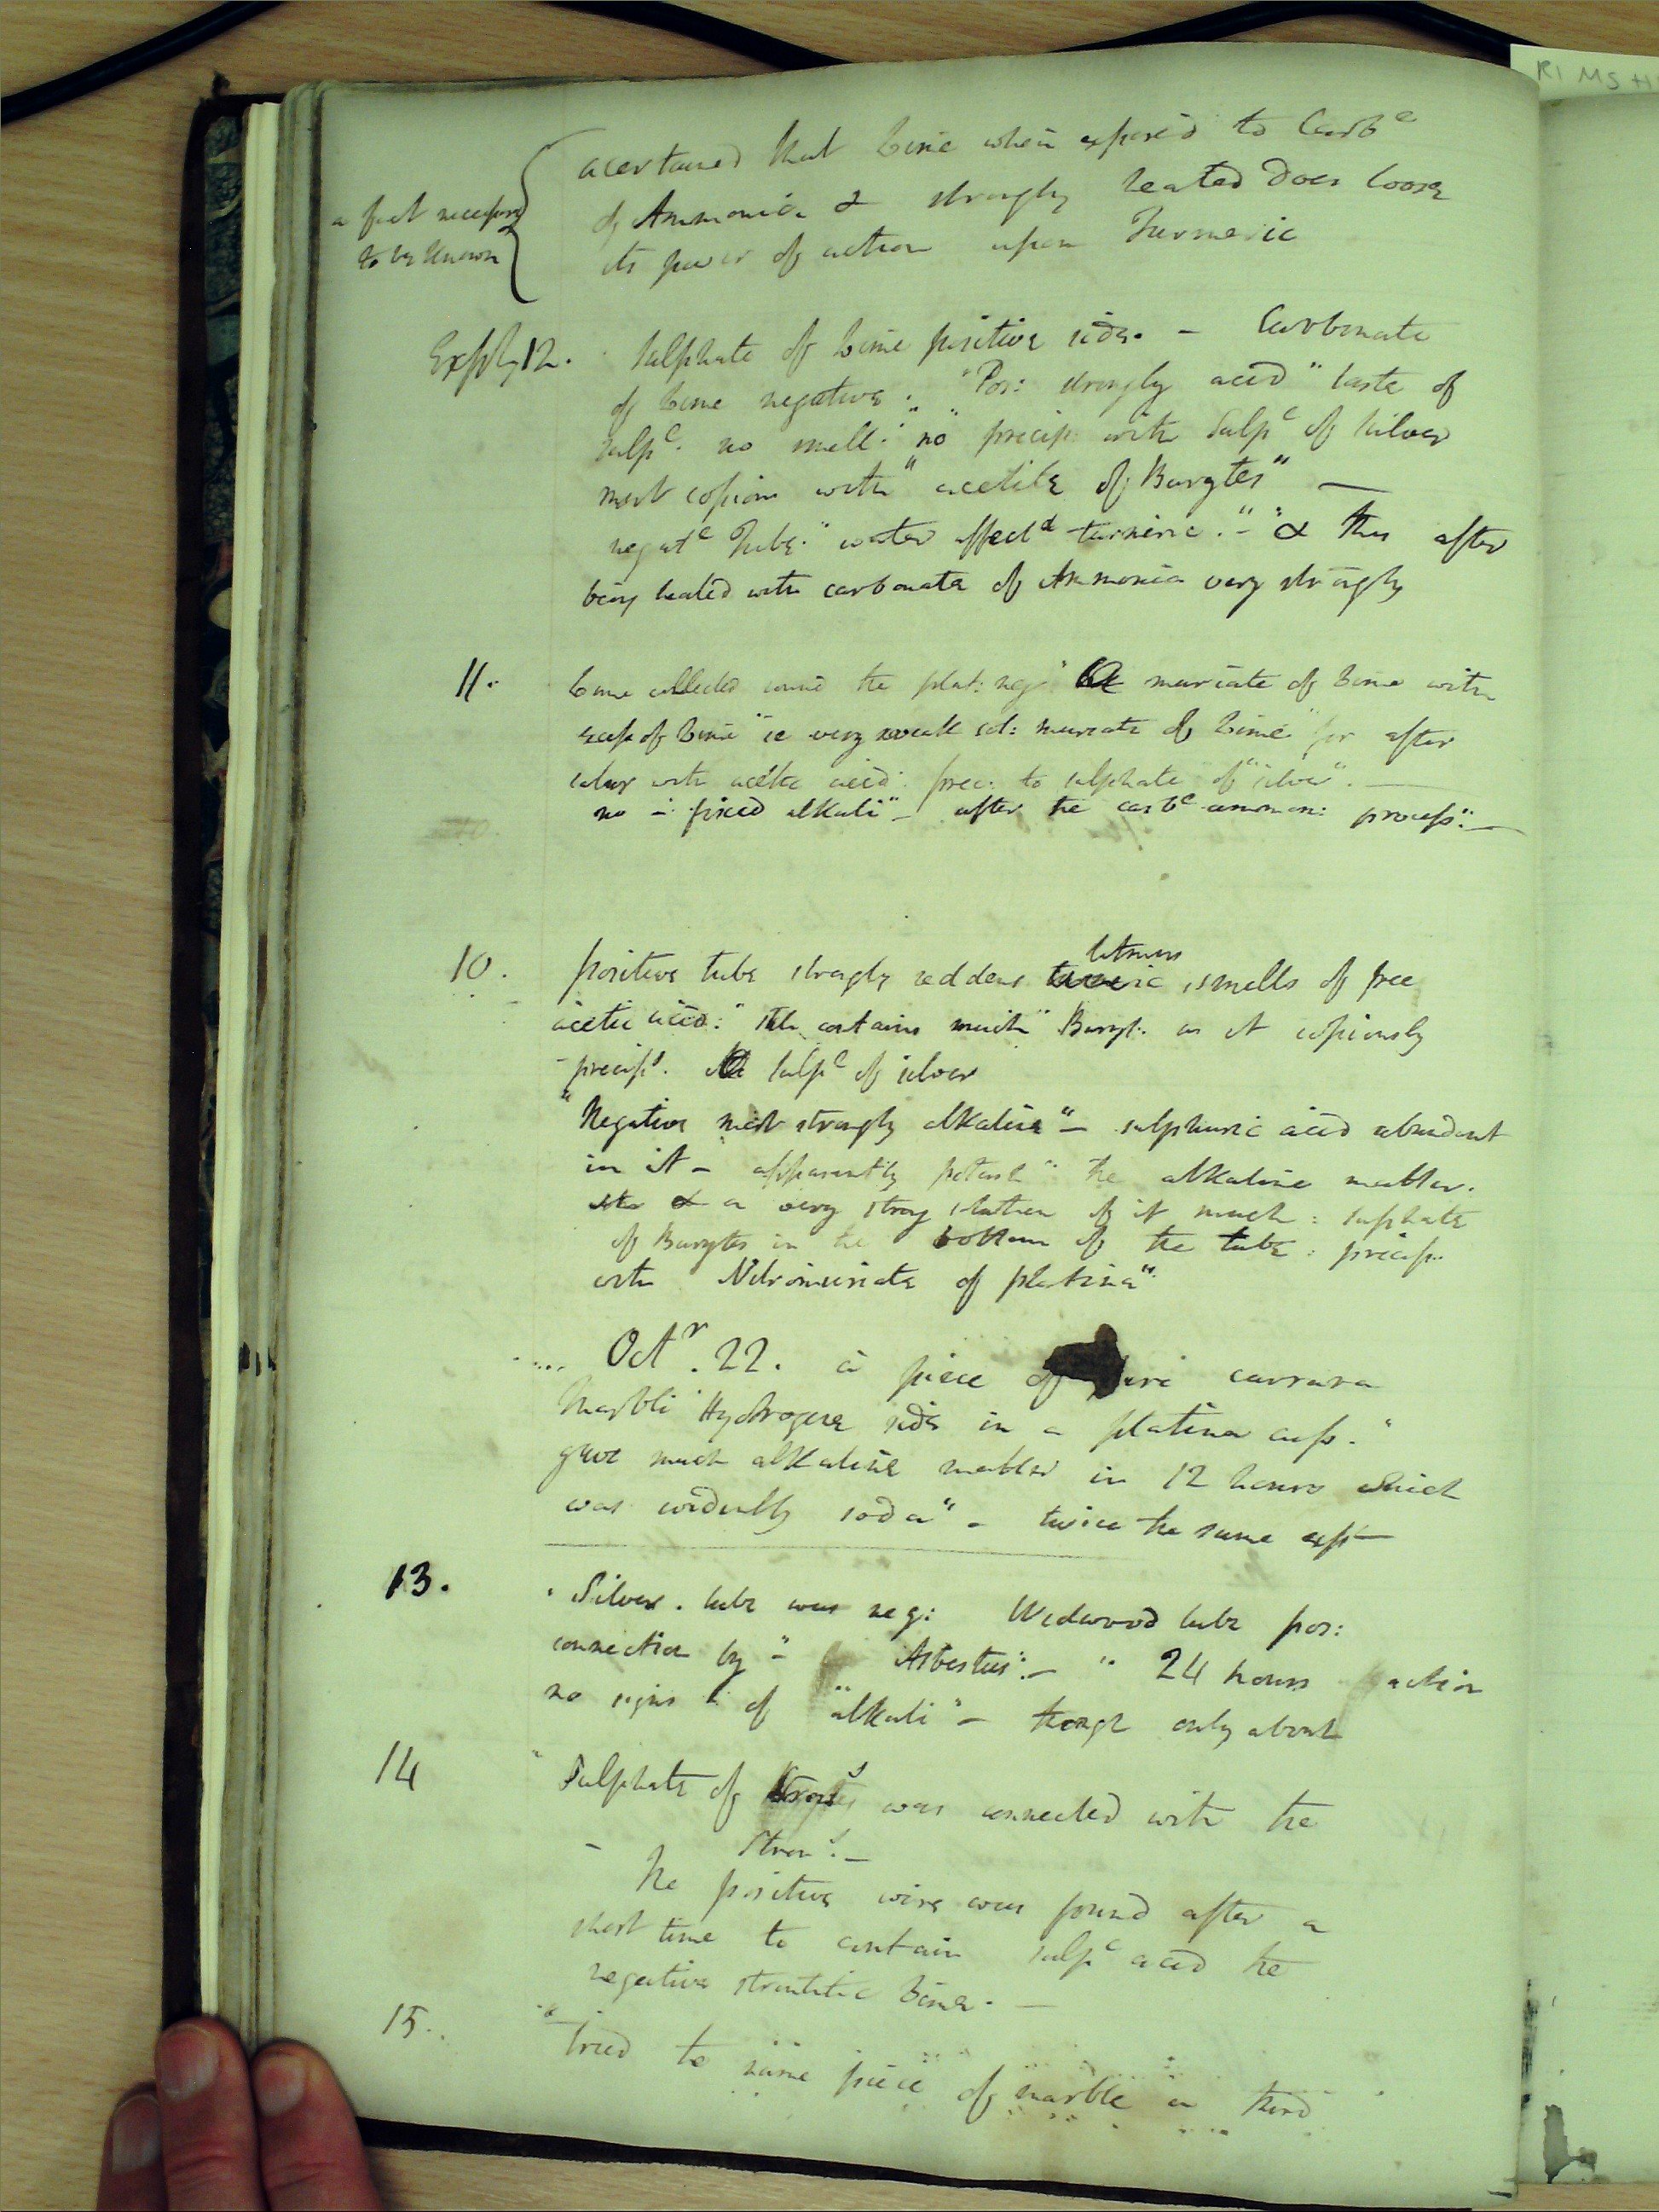 RI MS H
acertained that Lime when exposed to Carbe
of Ammonia & strongly heated does loose
its power of action upon Turmeric
a fact necessary
to be known
12. Sulphate of Lime positive side. - Carbonate
of Lime negative. "Pos: strongly acid" taste of
sulpc. no smell. "no" precip: with Sulpc of Silver
most copious with "acetite of Barytes" -
negate Tube." water affectd turmeric." - "& this after
being heated with carbonate of Ammonia very strongly
11. Lime collected round the plat: neg" muriate of Lime with
 of Lime" ie very weak sol: muriate of Lime" for after
 with acetic acid: prec: to sulphate of "silver". -
no - fixed alkali" - after the carbc ammon: process". -
10. positive tube strongly reddens litmus, smells of free
acetic acid:" contains much" Baryt: as it copiously
- precips. sulpc of silver
"Negative most strongly alkaline" - sulphuric acid abundant
in it - apparently potash" the alkaline matter.
& a very strong solution of it much: sulphate
of Barytes in the bottom of the tube: precip:
with Nitromuriate of platina"
Octr. 22. a piece of carrara
Marble "Hydrogene side in a platina cup."
gave much alkaline matter in 12 hours which
was evidently soda" - twice the same expt
13. "Silver. tube was neg: Wedwood tube pos:
connection by " - Asbestus". - " 24 hours action
no signs of "alkali" - though only about
14 "Sulphate of was connected with the
- Stron: -
the positive wire was found after a
short time to contain sulpc acid the
negative strontitic Lime. -
15. "tried the same piece of marble a third